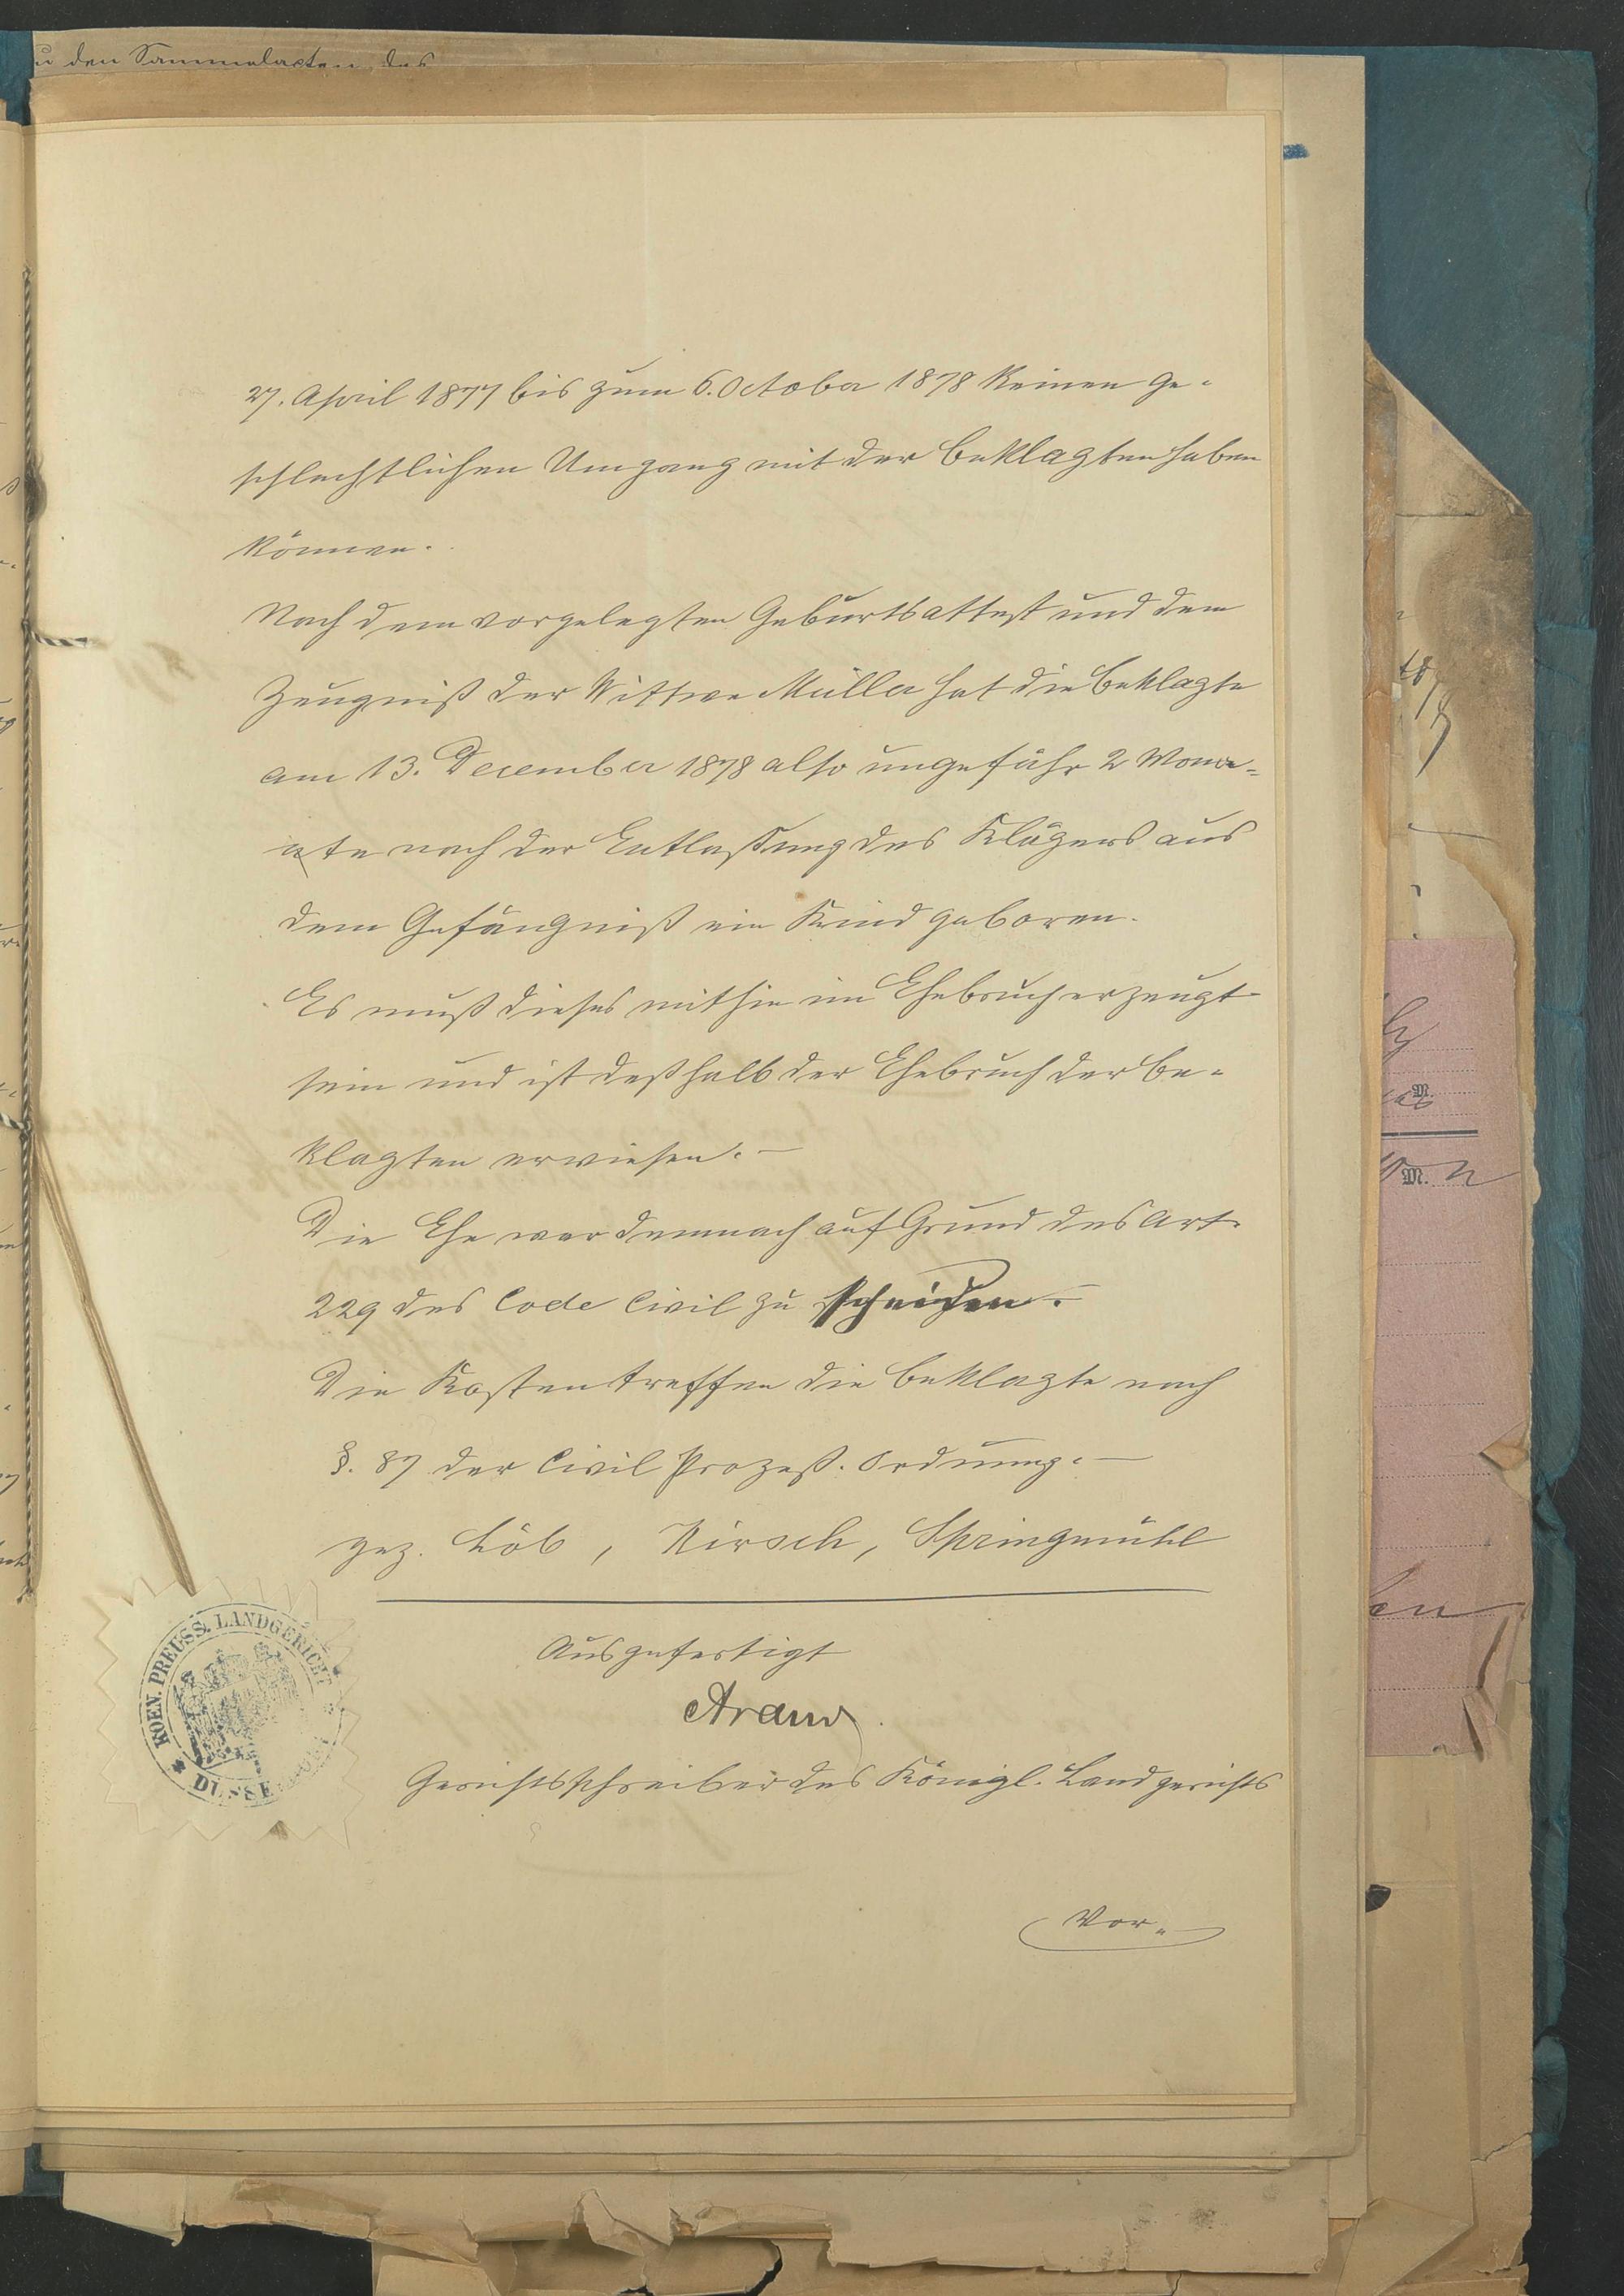 u den Sammelacten des
27. April 1877 bis zum 6. October 1878 keinen ge-
schlechtlichen Umgang mit der Beklagten haben
können.
Nach dem vorgelegten Geburtsattest und dem
Zeugniß der Wittwe Müller hat die Beklagte
am 13. December 1878 also ungefähr 2 Mona-
te nach der Entlassung des Klägers aus
dem Gefängniß ein Kind geboren.
Es muß dieses mithin im Ehebruch erzeugt
sein und ist deßhalb der Ehebruch der Be-
klagten erwiesen. –
Die Ehe war demnach auf Grund des Art.
229 des Code Civil zu scheiden. –
Die Kosten treffen die Beklagte nach
§. 87 der Civil Prozeß. Ordnung. –
gez. Löb, Kirsch, Springmühl
Ausgefertigt
Gerichtsschreiber des Königl. Landgerichts
KOEN. PREUSS. LANDGERICHT
* DÜSSELDORF
Vor-
M.
M.